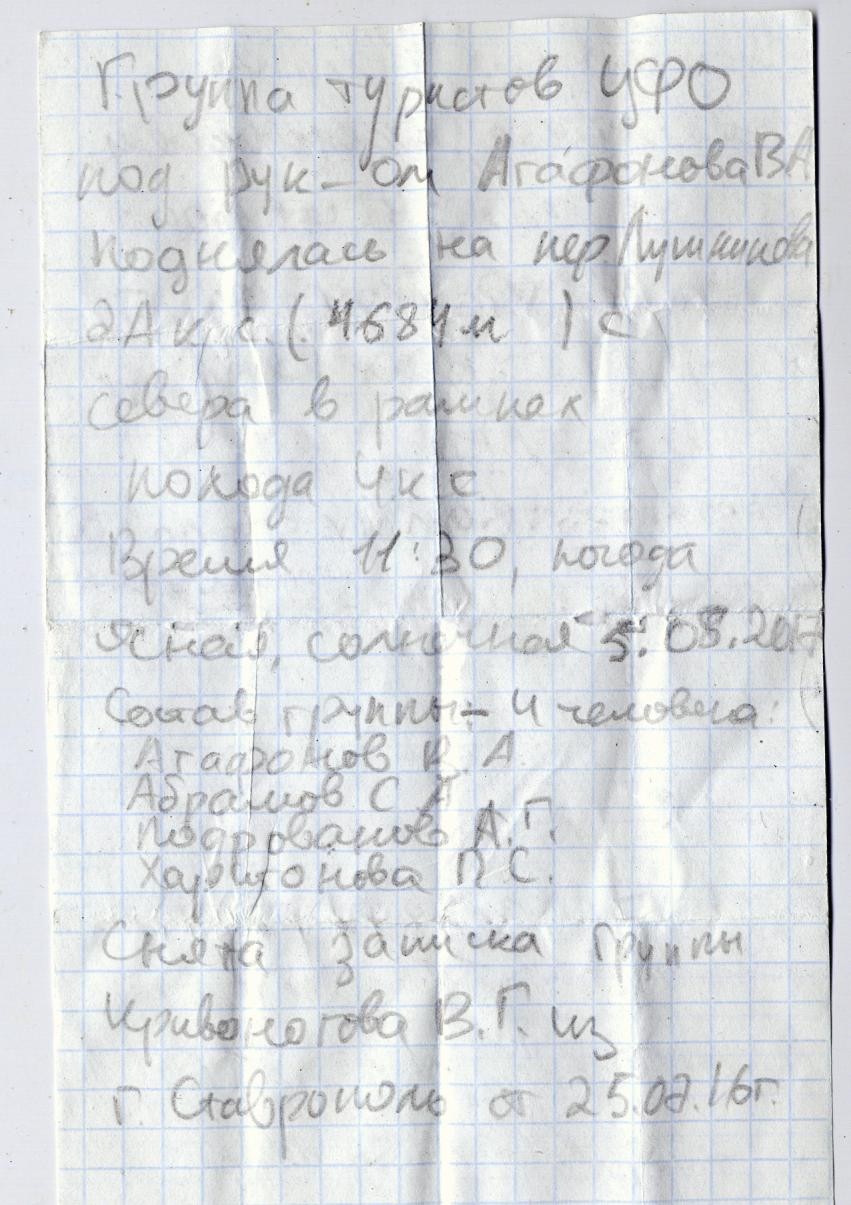 Группа туристов ЦФО
под рук-ом Агафонова В А
поднялась на пер Лушникова
2А к.с. (4684 м ) с
севера в рамках
похода 4 к.с.
Время 11:30, погода
ясная, солнечная 5.08.2017
Состав группы - 4 человека:
Агафонов В. А
Абрамов С А
Подрованов А.Г.
Харитонова П С.
Снята записка группы
Кривоногова В.Г. из
г. Ставрополь от 25.07.16г.